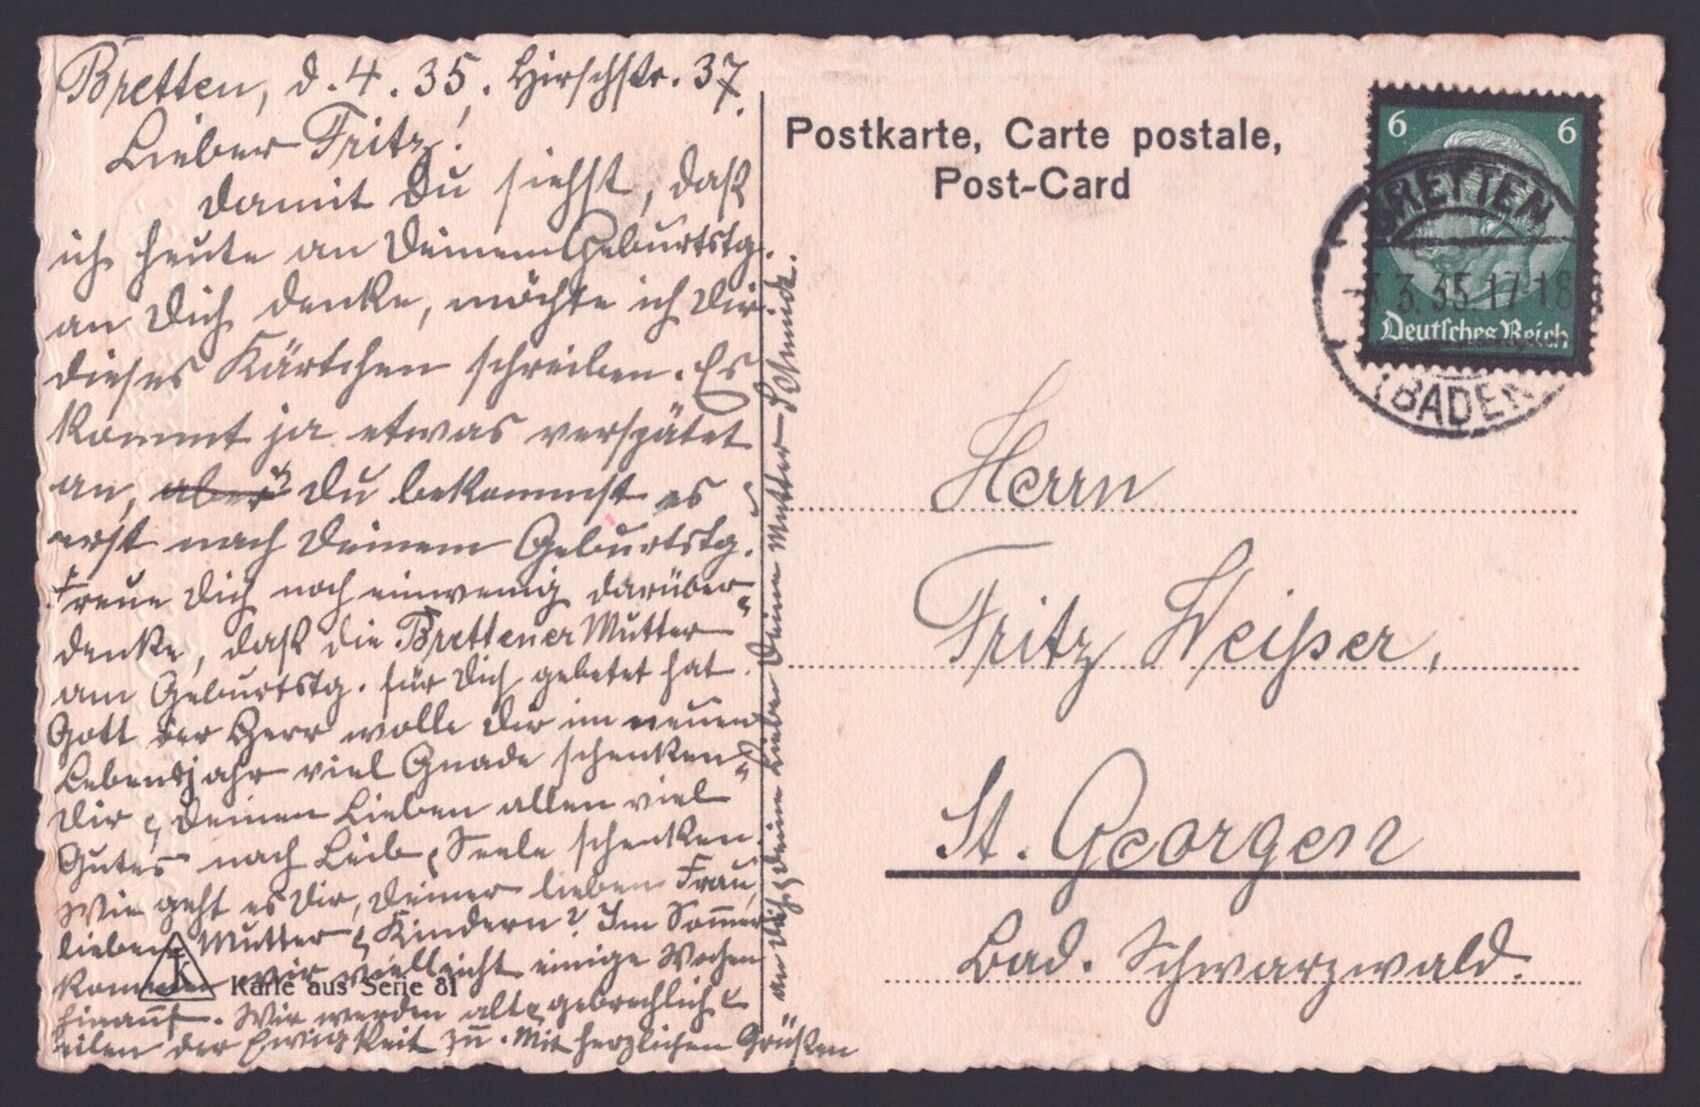 Bretten, d. 4. 35. Hirschstr. 37.
Lieber Fritz!
Damit Du siehst, daß
ich heute an Deinem Geburtstg.
an Dich denke, möchte ich Dir
dieses Kärtchen schreiben. Es
kommt ja etwas verspätet
an, aber Du bekommst es
erst nach Deinem Geburtstg.
Freue Dich noch ein wenig darüber
denke, daß die Brettener Mutter
am Geburtstg. für Dich gebetet hat.
Gott der Herr wolle Dir im neuen
Lebensjahr viel Gnade schenken
Dir & Deinen Lieben allen viel
Gutes nach Leib & Seele schenken.
Wie geht es Dir, Deiner lieben Frau,
lieben Mutter & Kindern? Im Sommer
kommen wir vielleicht einige Wochen
hinauf. Wir werden alt & gebrechlich &
eilen der Ewigkeit zu. Mit herzlichen Grüßen
an Dich & Deine Lieben Deine Mutter
JK
Karte aus Serie 81
Postkarte, Carte postale,
Post-Card
6 6
Deutsches Reich
BRETTEN
3.35.17-18
(BADEN)
Herrn
Fritz Weißer,
St. Georgen
Bad. Schwarzwald.